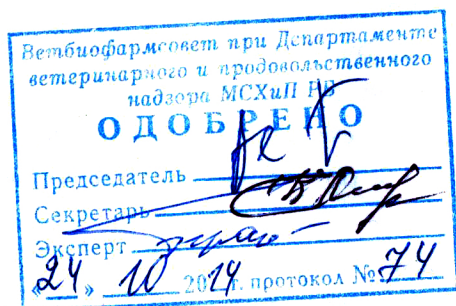 Ветбиофармсовет при Департаменте
ветеринарного и продовольственного
надзора МСХиП РБ
ОДОБРЕНО
Председатель
Секретарь
Эксперт
"24" 10 2014 г. протокол № 74